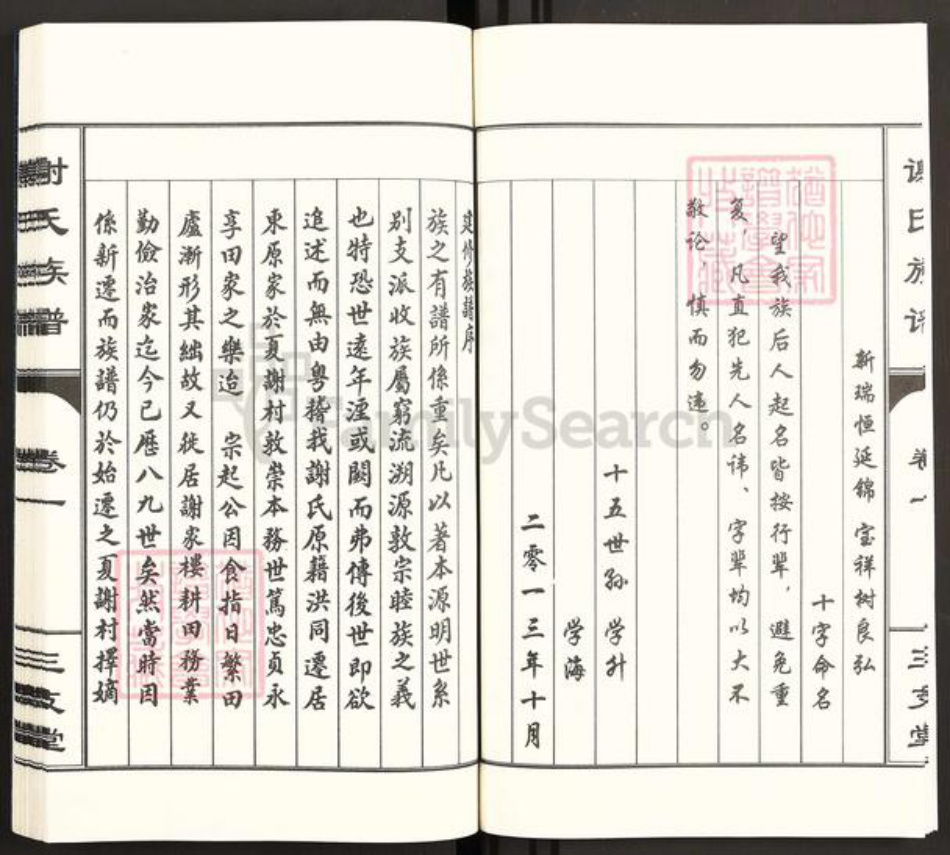 新瑞恒延锦 宝祥树良弘
十字命名
望我族后人起名皆按行辈，避免重
复，凡直犯先人名讳、字辈均以大不
敬论。慎而勿违。
十五世孙 学升
学海
二零一三年十月
谢氏族谱 卷一 三文堂
建修族譜序
族之有譜所係重矣凡以著本源明世系
别支派收族屬窮流溯源敦宗睦族之義
也特恐世遠年湮或闕而弗傳後世即欲
追述而無由粤稽我謝氏原籍洪同遷居
東原家於夏謝村敦崇本務世篤忠貞永
享田家之樂迨 宗起公因食指日繁田
廬漸形其絀故又徙居謝家樓耕田務業
勤儉治家迄今已歷八九世矣然當時因
係新遷而族譜仍於始遷之夏謝村擇嫡
謝氏族譜 卷一 三文堂
FamilySearch